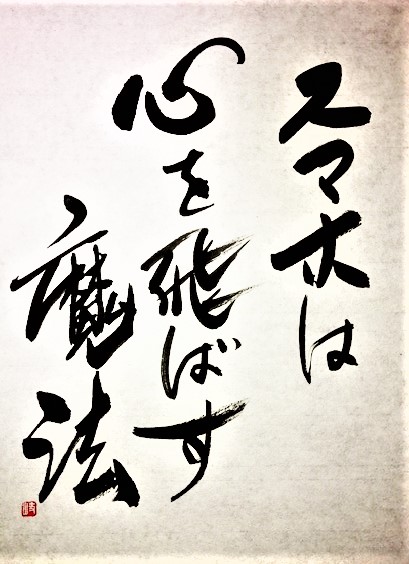 スマホは
心を飛ばす
魔法